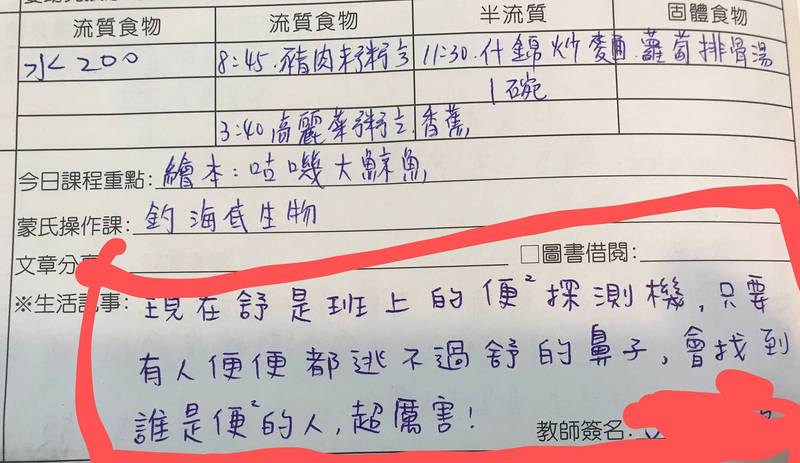 流質食物 流質食物 半流質 固體食物
水 200 8:45.豬肉粥 11:30.什錦炒麵.蘿蔔排骨湯
1碗
3:40高麗菜粥 香蕉
今日課程重點:繪本:咕嘰大鯨魚
蒙氏操作課:釣海底生物
文章分 □圖書借閱:
※生活記事:現在舒是班上的便²探測機,只要
有人便便都逃不過舒的鼻子,會找到
誰是便²的人,超厲害!
教師簽名: